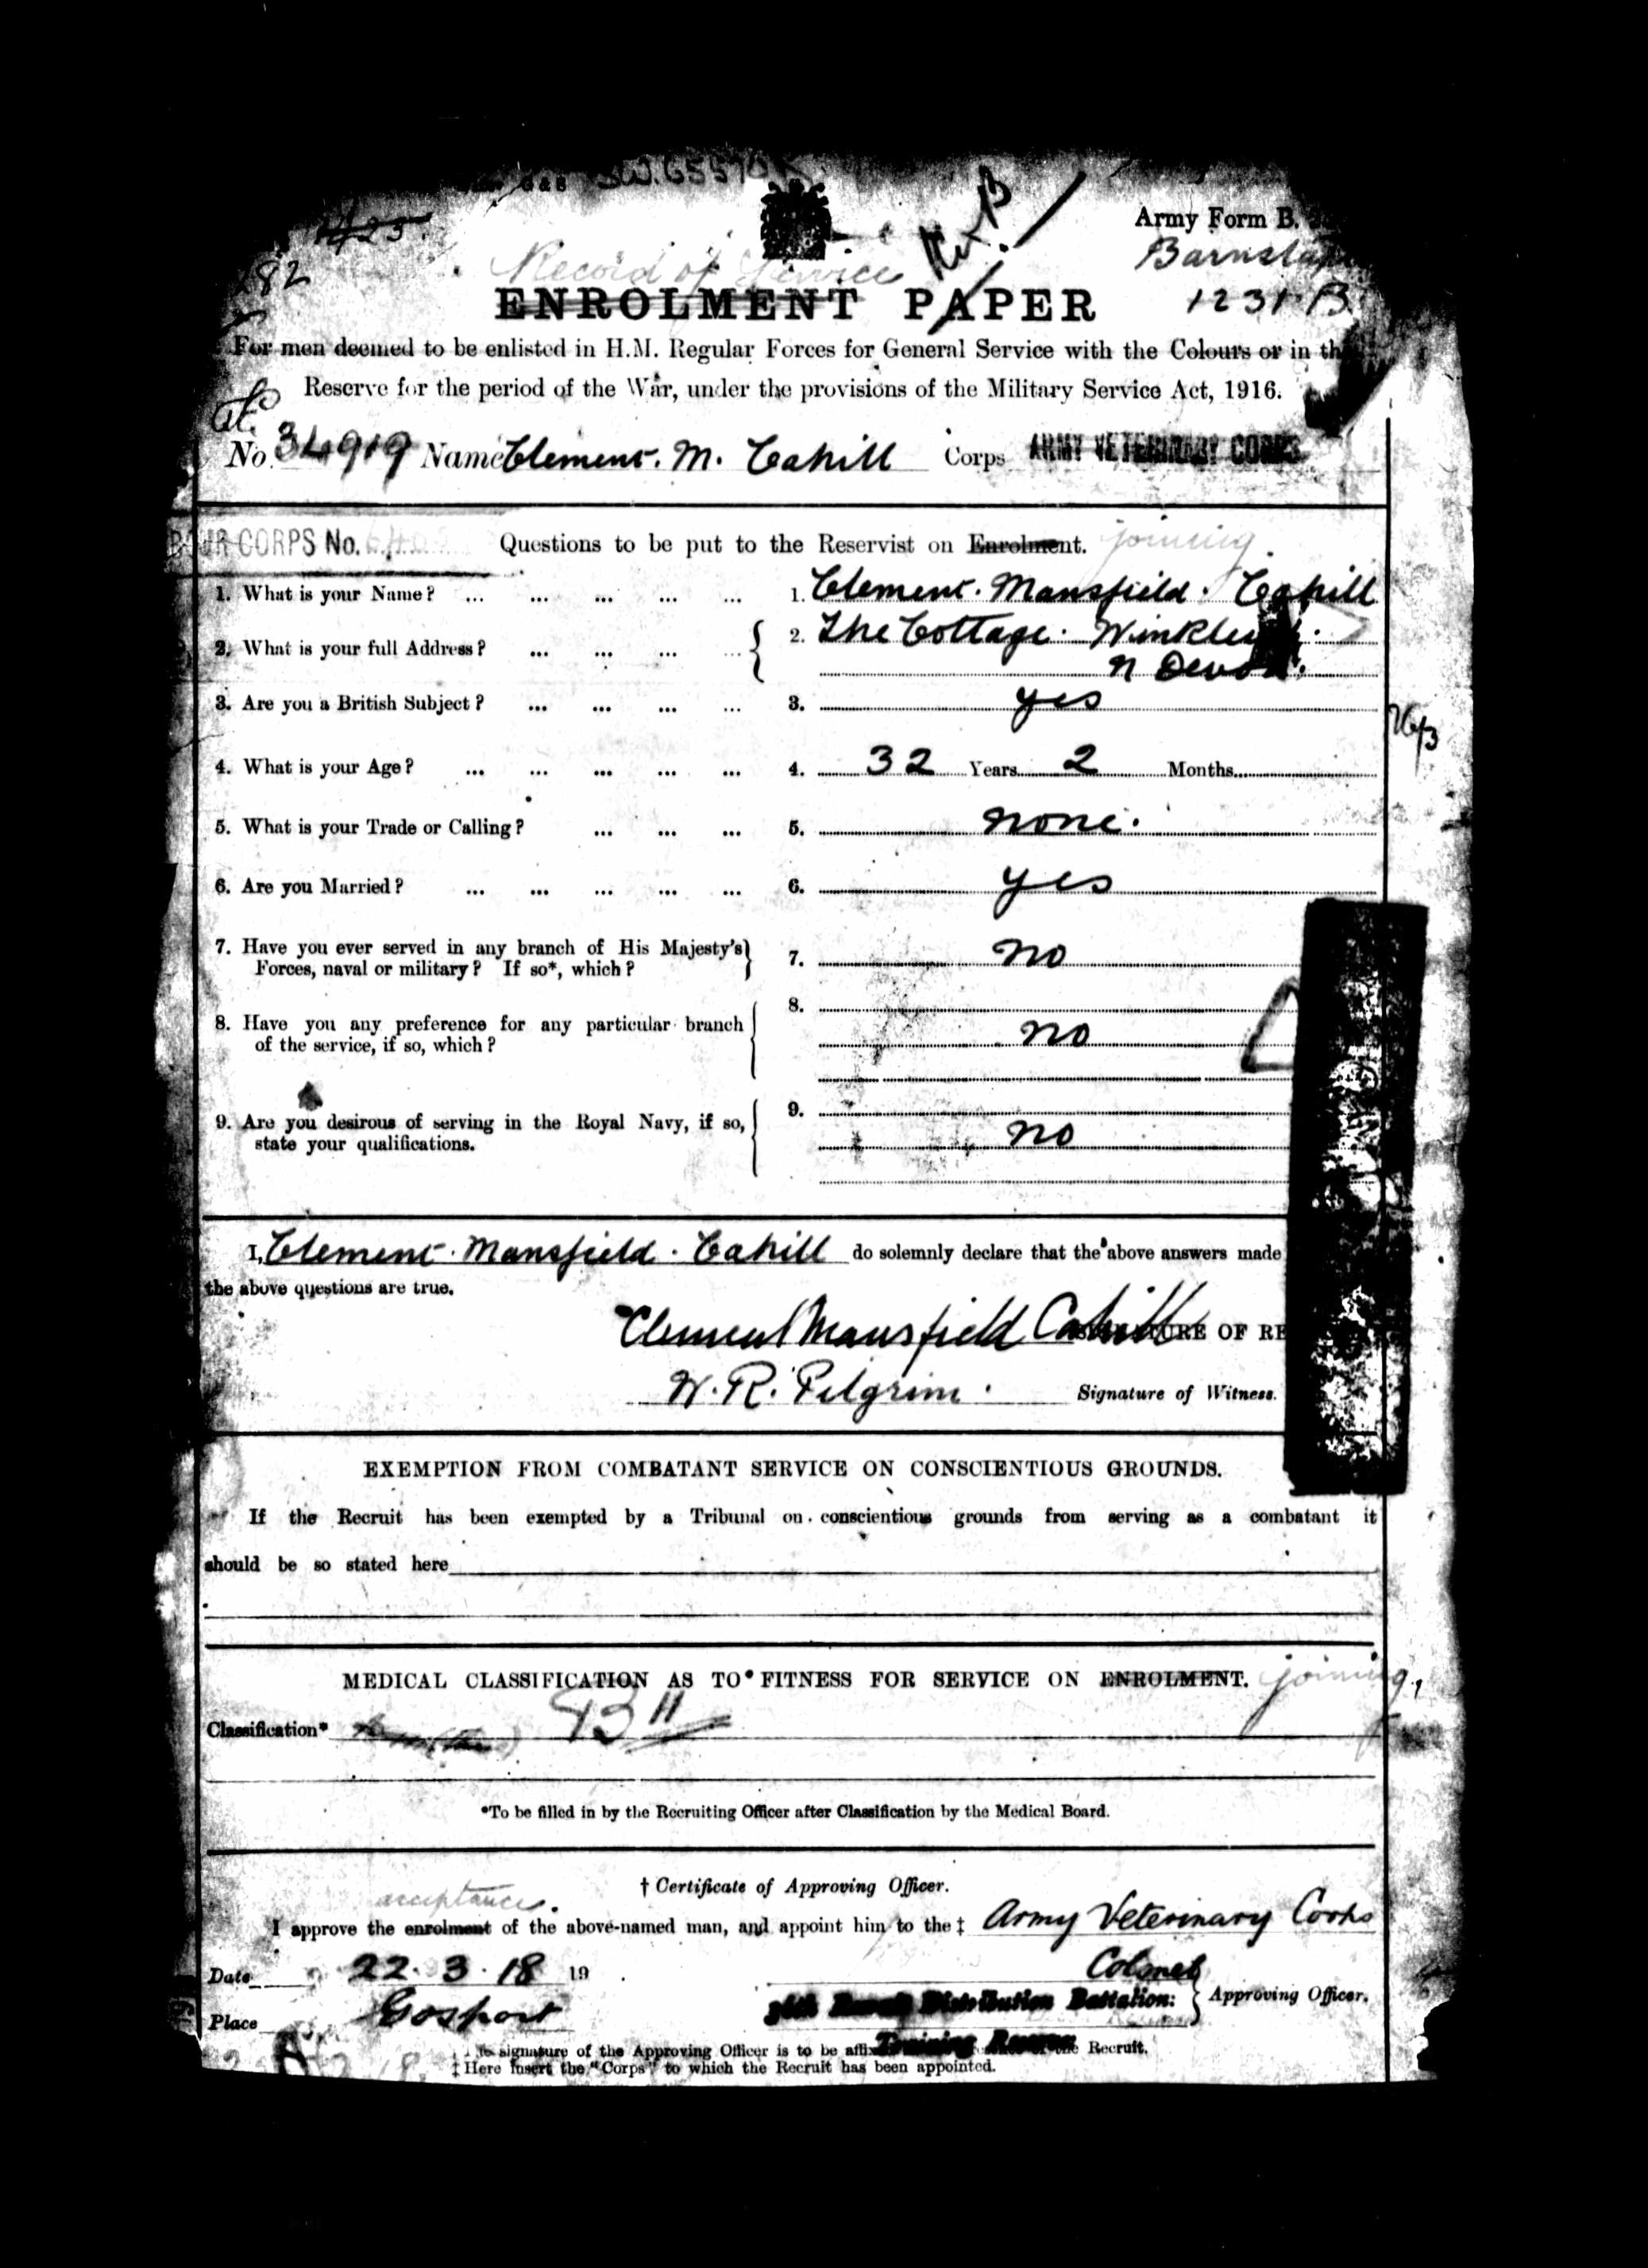 Army Form B.
282
Record of Service
ENROLMENT PAPER
1231 B
For men deemed to be enlisted in H.M. Regular Forces for General Service with the Colours or in the
Reserve for the period of the War, under the provisions of the Military Service Act, 1916.
No. 34919 Name Clement. M. Cahill Corps ARMY VETERINARY CORPS
CORPS No. Questions to be put to the Reservist on Enrolment. joining.
1. What is your Name? ... ... ... ... ... 1. Clement. Mansfield. Cahill
2. What is your full Address? ... ... ... ... 2. The Cottage. Winkleigh.
N Devon.
3. Are you a British Subject? ... ... ... ... 3. yes
4. What is your Age? ... ... ... ... ... 4. 32 Years 2 Months
5. What is your Trade or Calling? ... ... ... 5. none.
6. Are you Married? ... ... ... ... ... 6. yes
7. Have you ever served in any branch of His Majesty's
Forces, naval or military? If so*, which? 7. no
8. Have you any preference for any particular branch
of the service, if so, which? 8. no
9. Are you desirous of serving in the Royal Navy, if so,
state your qualifications. 9. no
I, Clement. Mansfield. Cahill do solemnly declare that the above answers made
the above questions are true.
Clement Mansfield Cahill OF RE
W. R. Pilgrim. Signature of Witness.
EXEMPTION FROM COMBATANT SERVICE ON CONSCIENTIOUS GROUNDS.
If the Recruit has been exempted by a Tribunal on conscientious grounds from serving as a combatant it
should be so stated here
MEDICAL CLASSIFICATION AS TO FITNESS FOR SERVICE ON ENROLMENT. joining,
Classification*
*To be filled in by the Recruiting Officer after Classification by the Medical Board.
† Certificate of Approving Officer.
acceptance.
I approve the enrolment of the above-named man, and appoint him to the ‡ Army Veterinary Corps
Date 22. 3. 18 19 .
Colonel
Distribution Battalion: Approving Officer.
Place Gosport
signature of the Approving Officer is to be Recruit.
‡ Here insert the "Corps" to which the Recruit has been appointed.